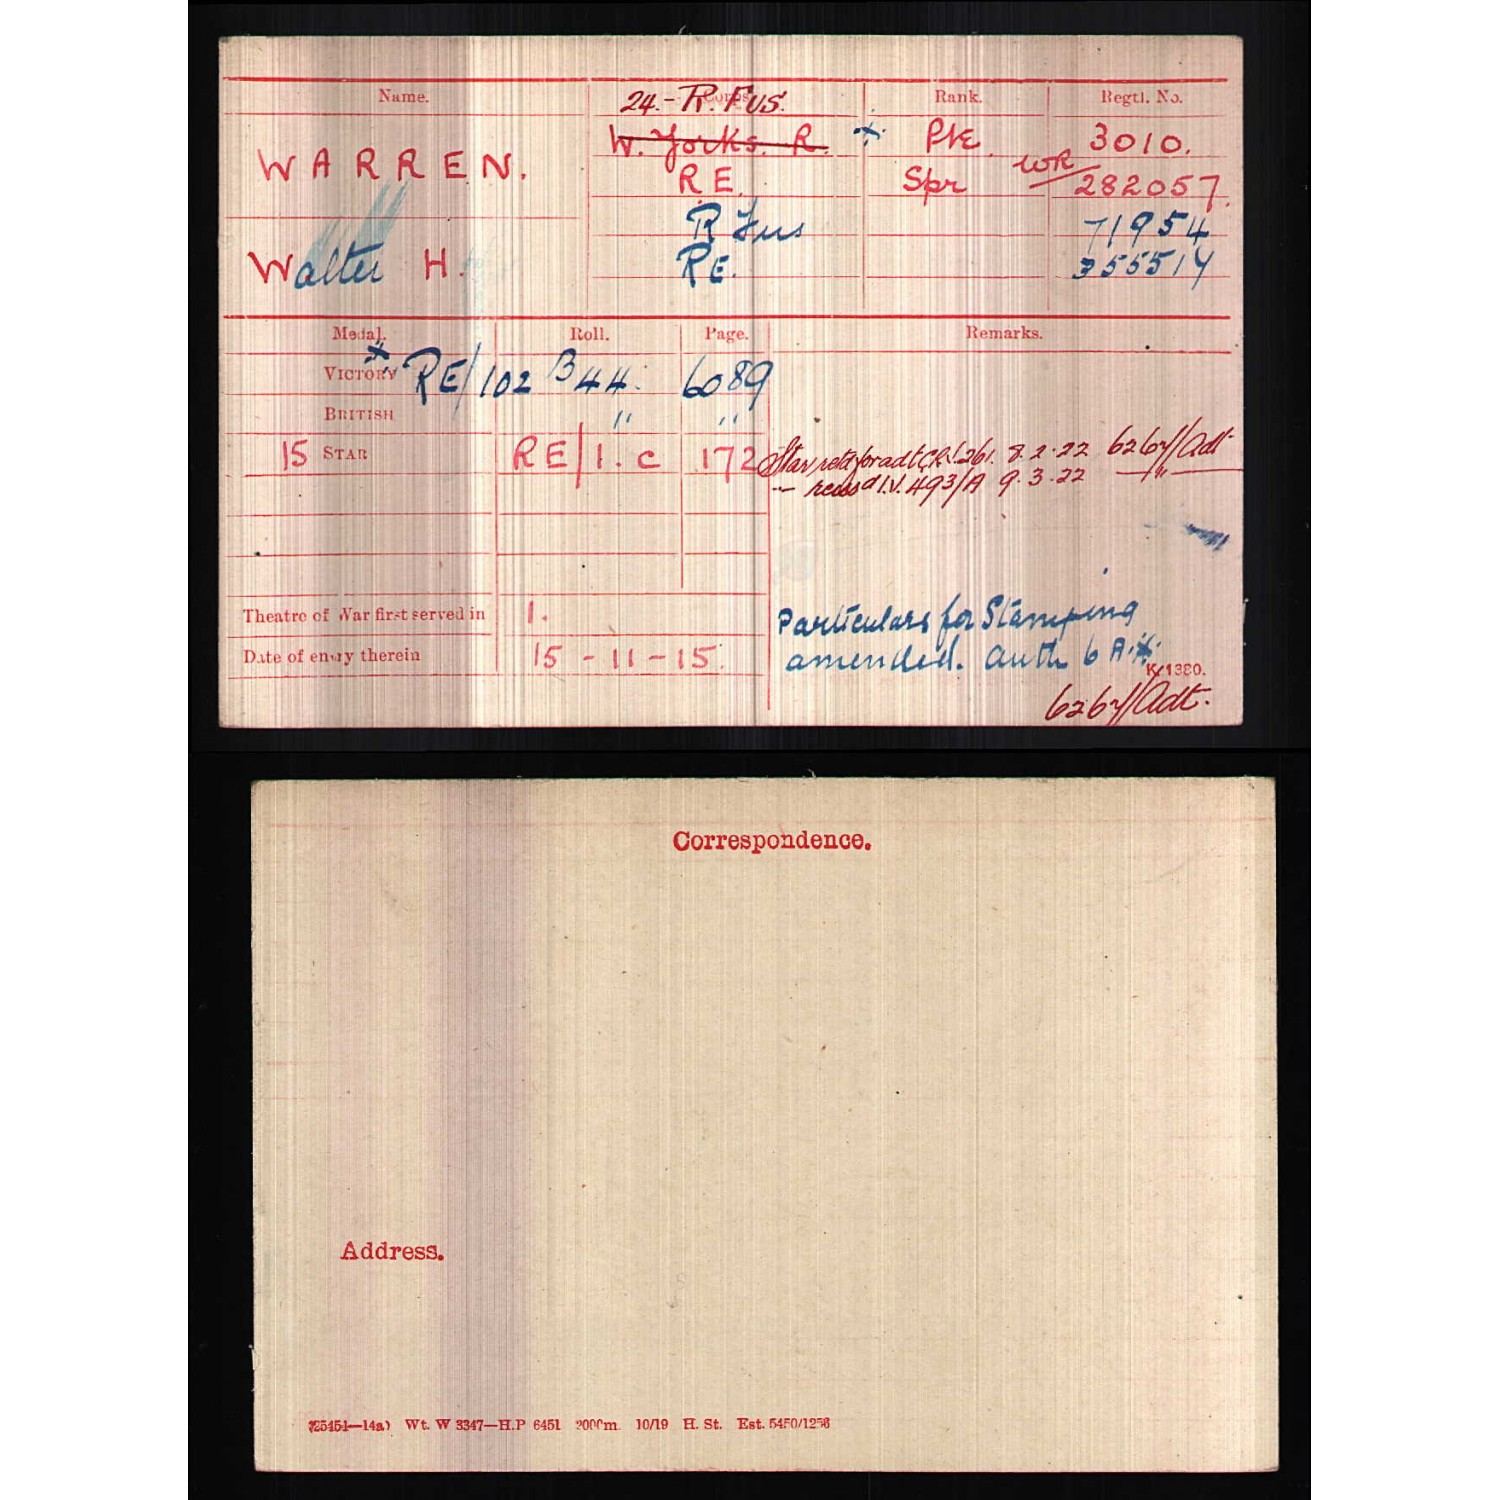 Name. Corps. Rank. Regtl. No.
24.- R. Fus.
W. Yorks. R. Pte. 3010.
WARREN.
R E. Spr WR 282057.
R Fus 71954
Walter H. R E. 355514
Medal. Roll. Page. Remarks.
VICTORY RE/102 B44. 6089
BRITISH " "
15 STAR RE/1. C 172 Star retd for adt 261. 2.22 6267/Adt
— reissd I.V. 493/A 9.3.22 — " —
Theatre of War first served in 1. Particulars for Stamping
Date of entry therein 15-11-15. amended. auth 6 A.
K/1380.
6267/Adt.
Correspondence.
Address.
(25454—14a) Wt. W 3347—H.P 6451 2000m. 10/19 H. St. Est. 5450/1256